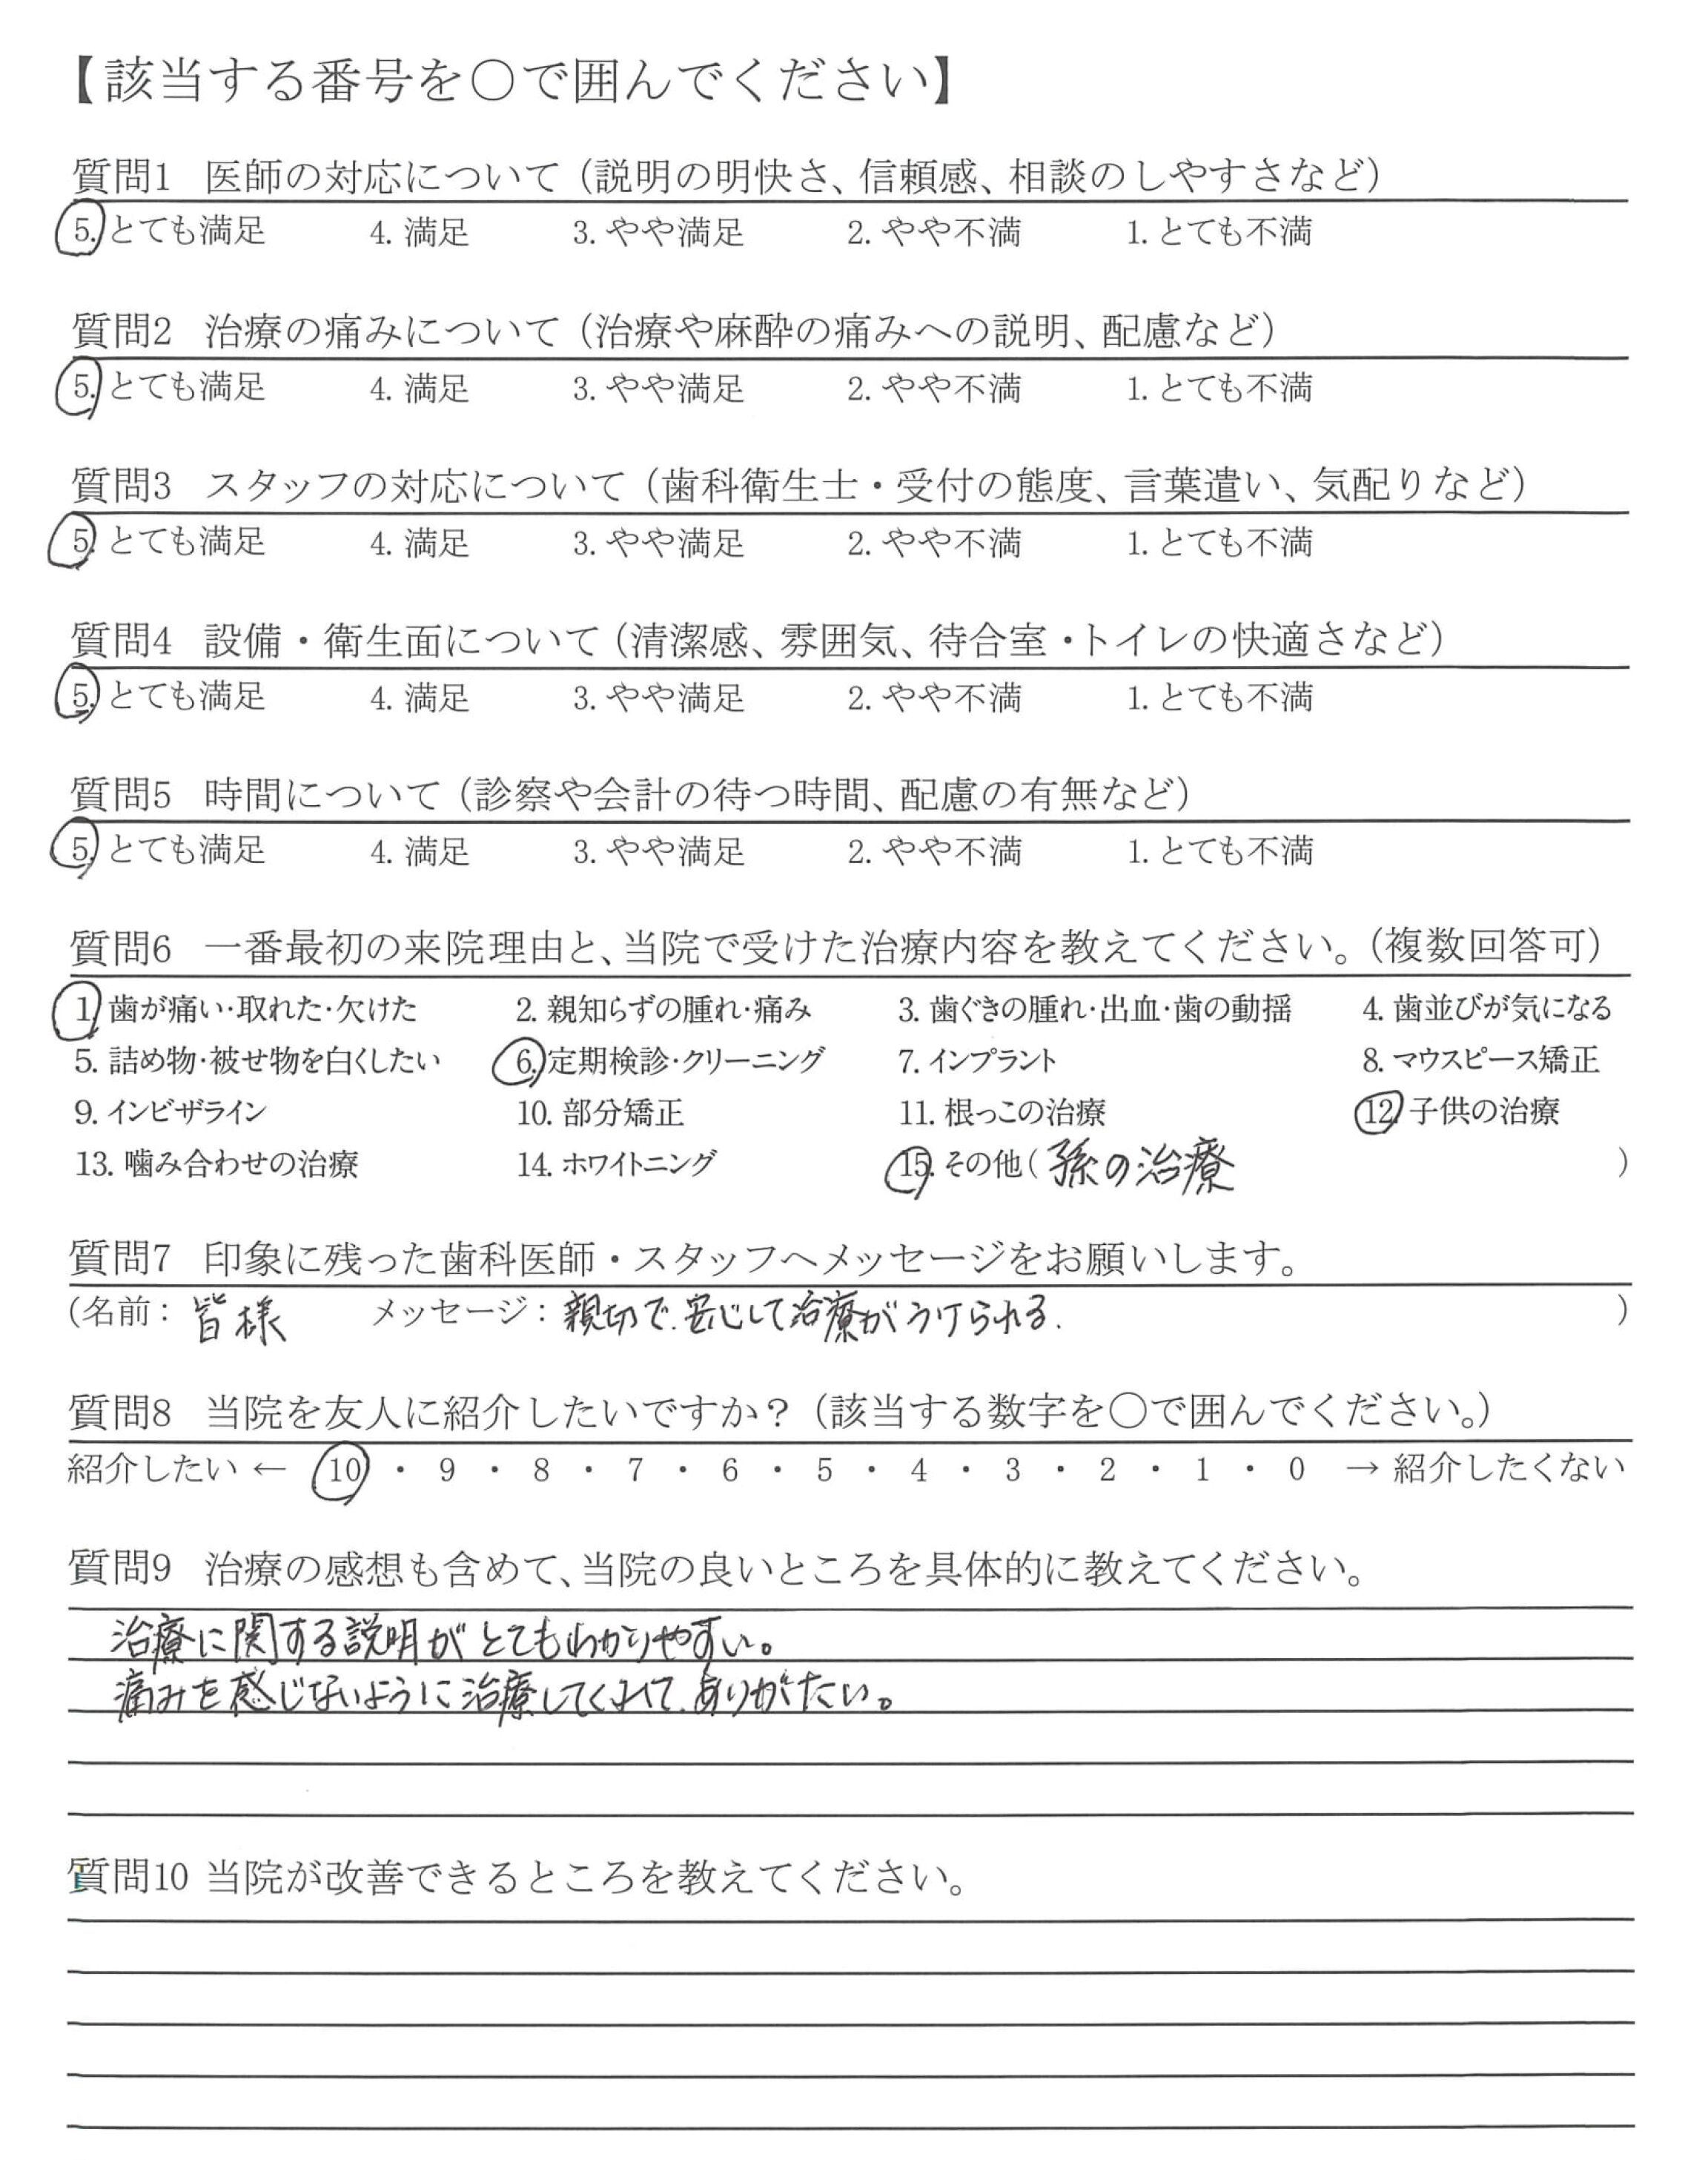 【該当する番号を○で囲んでください】
質問1 医師の対応について（説明の明快さ、信頼感、相談のしやすさなど）
5. とても満足 4. 満足 3. やや満足 2. やや不満 1. とても不満
質問2 治療の痛みについて（治療や麻酔の痛みへの説明、配慮など）
5. とても満足 4. 満足 3. やや満足 2. やや不満 1. とても不満
質問3 スタッフの対応について（歯科衛生士・受付の態度、言葉遣い、気配りなど）
5. とても満足 4. 満足 3. やや満足 2. やや不満 1. とても不満
質問4 設備・衛生面について（清潔感、雰囲気、待合室・トイレの快適さなど）
5. とても満足 4. 満足 3. やや満足 2. やや不満 1. とても不満
質問5 時間について（診察や会計の待つ時間、配慮の有無など）
5. とても満足 4. 満足 3. やや満足 2. やや不満 1. とても不満
質問6 一番最初の来院理由と、当院で受けた治療内容を教えてください。（複数回答可）
1. 歯が痛い・取れた・欠けた 2. 親知らずの腫れ・痛み 3. 歯ぐきの腫れ・出血・歯の動揺 4. 歯並びが気になる
5. 詰め物・被せ物を白くしたい 6. 定期検診・クリーニング 7. インプラント 8. マウスピース矯正
9. インビザライン 10. 部分矯正 11. 根っこの治療 12. 子供の治療
13. 噛み合わせの治療 14. ホワイトニング 15. その他（孫の治療）
質問7 印象に残った歯科医師・スタッフへメッセージをお願いします。
（名前：皆様 メッセージ：親切で、安心して治療がうけられる.）
質問8 当院を友人に紹介したいですか？（該当する数字を○で囲んでください。）
紹介したい ← 10 ・ 9 ・ 8 ・ 7 ・ 6 ・ 5 ・ 4 ・ 3 ・ 2 ・ 1 ・ 0 → 紹介したくない
質問9 治療の感想も含めて、当院の良いところを具体的に教えてください。
治療に関する説明がとてもわかりやすい。
痛みを感じないように治療してくれて、ありがたい。
質問10 当院が改善できるところを教えてください。